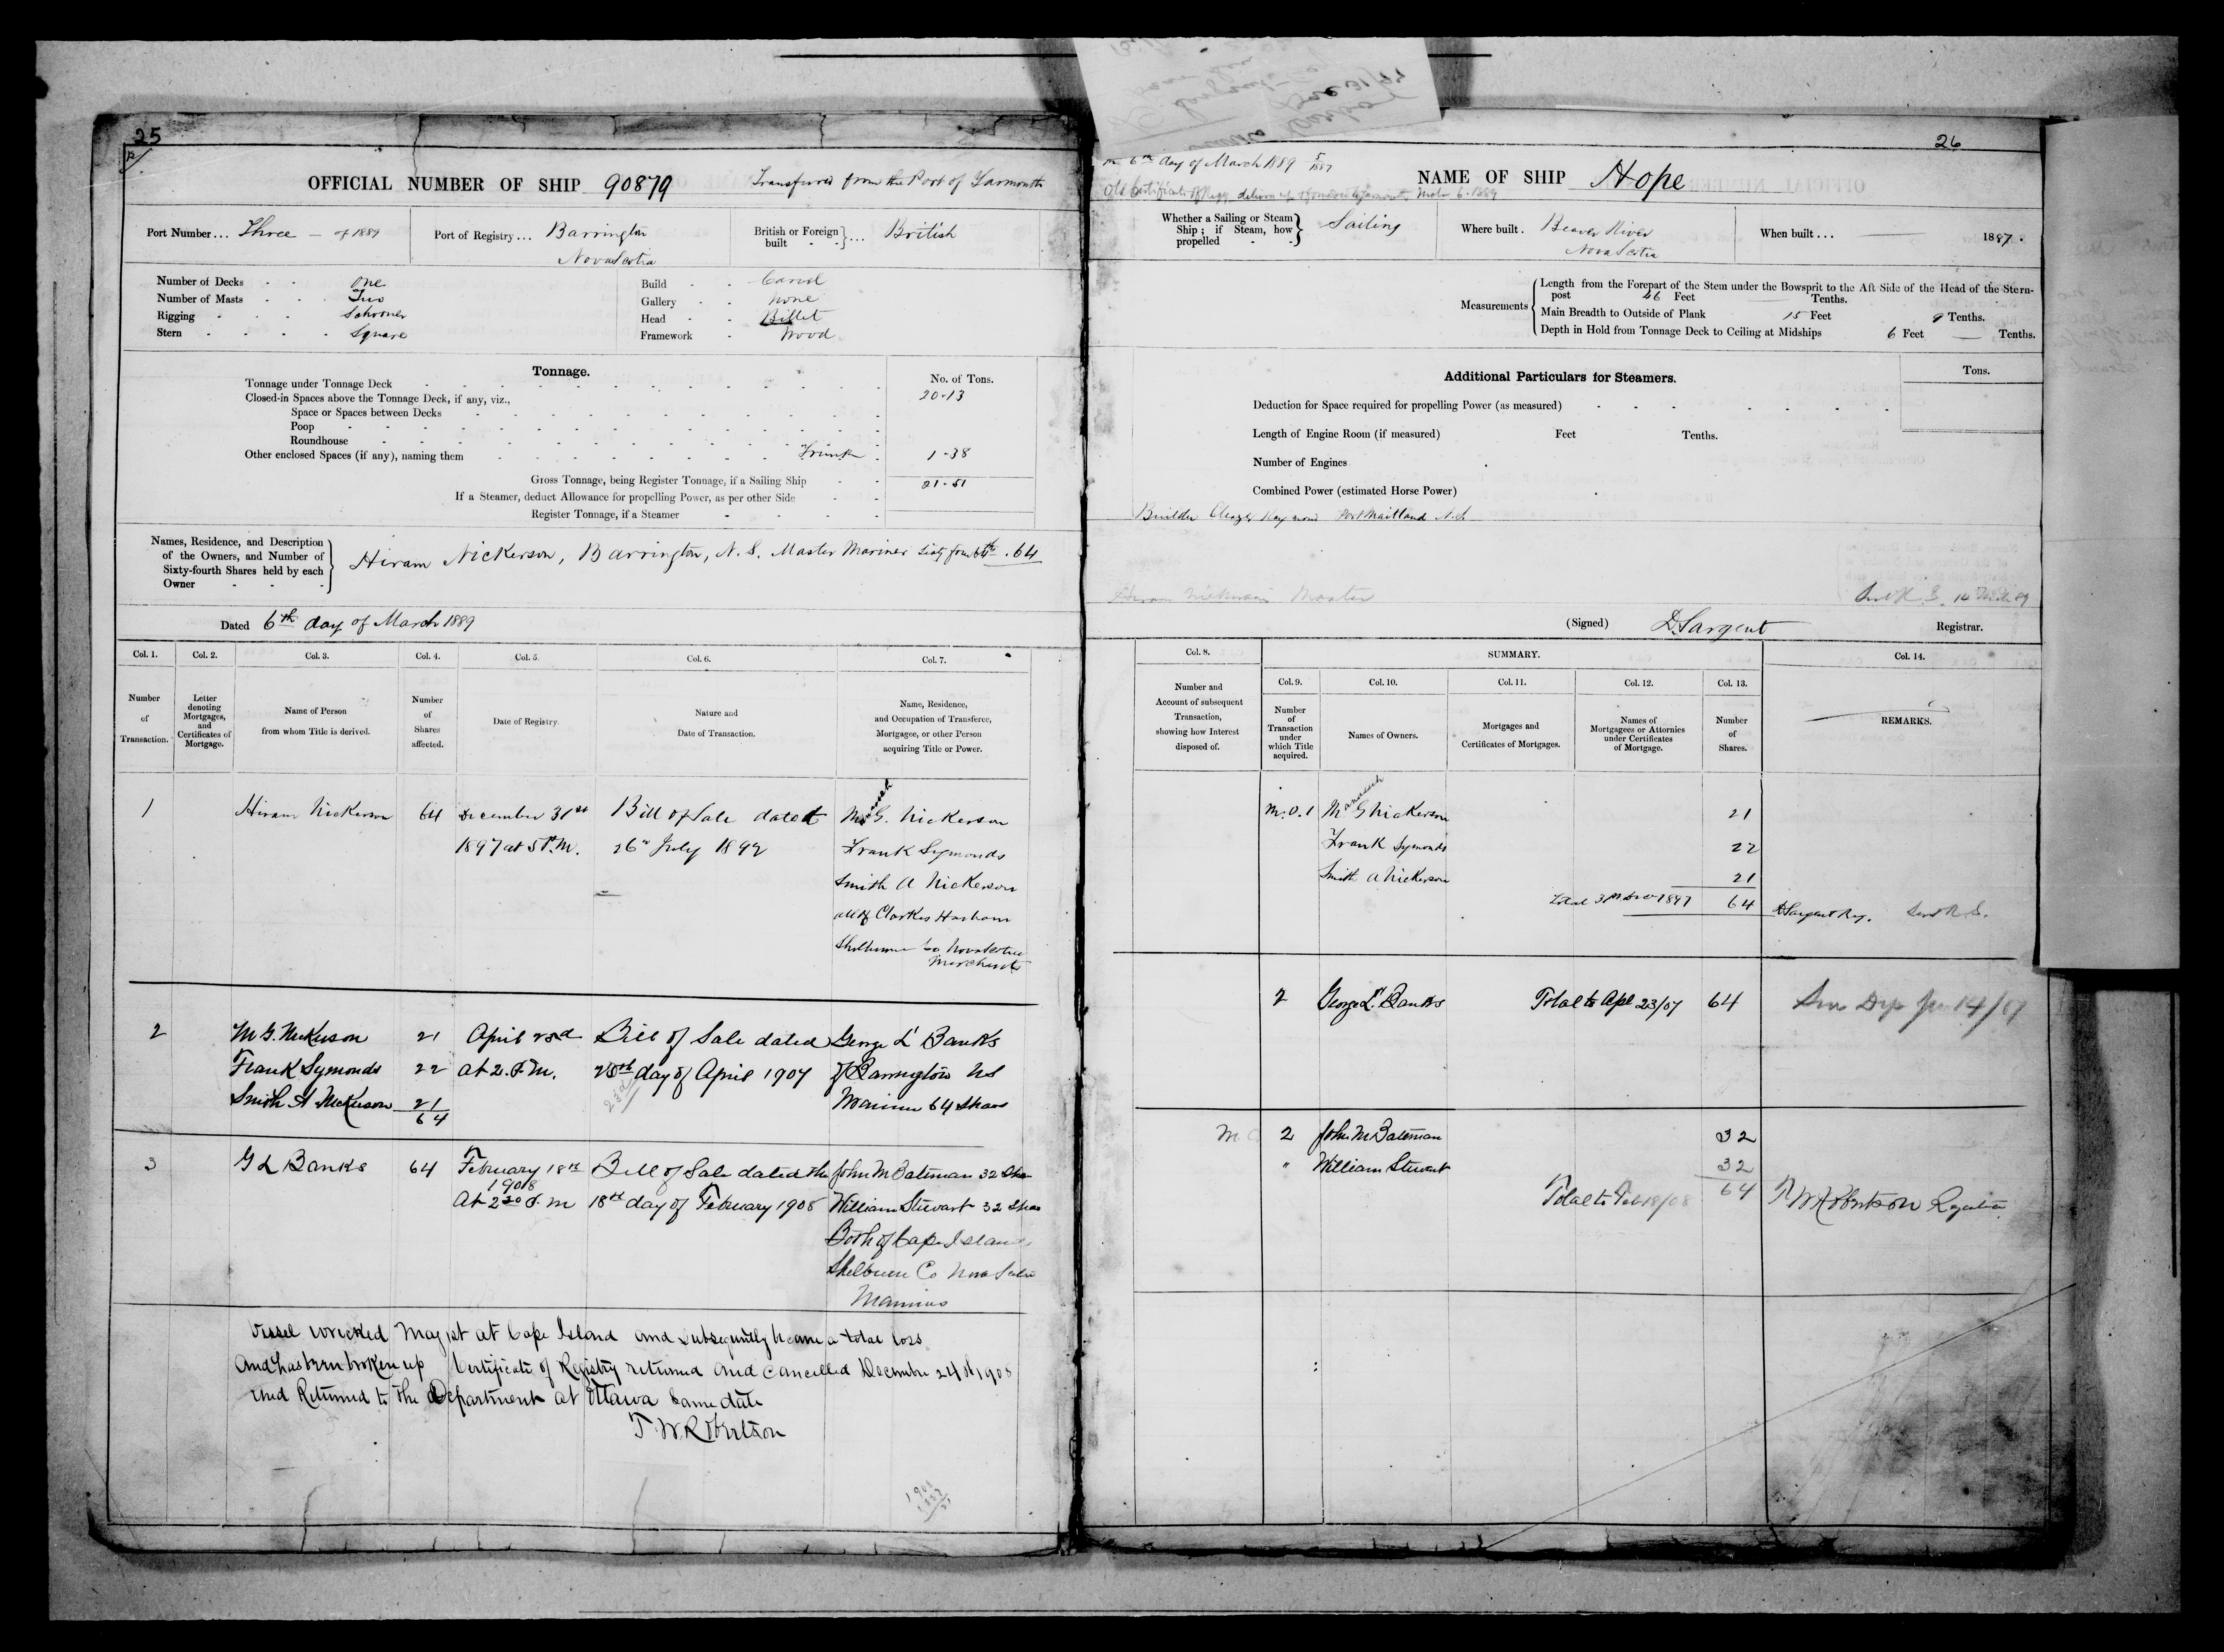 25
OFFICIAL NUMBER OF SHIP 90879 Transferred from the Port of Yarmouth
Port Number... Three — of 1889
Port of Registry... Barrington
Nova Scotia
British or Foreign built ... British
Number of Decks One
Number of Masts Two
Rigging Schooner
Stern Square
Build Carvel
Gallery None
Head Billet
Framework Wood
Tonnage.
No. of Tons.
Tonnage under Tonnage Deck 20.13
Closed-in Spaces above the Tonnage Deck, if any, viz.,
Space or Spaces between Decks
Poop
Roundhouse
Other enclosed Spaces (if any), naming them Trunk 1.38
Gross Tonnage, being Register Tonnage, if a Sailing Ship 21.51
If a Steamer, deduct Allowance for propelling Power, as per other Side
Register Tonnage, if a Steamer
Names, Residence, and Description
of the Owners, and Number of
Sixty-fourth Shares held by each
Owner
Hiram Nickerson, Barrington, N.S. Master Mariner Sixty four 64th . 64
Dated 6th day of March 1889
Col. 1. Col. 2. Col. 3. Col. 4. Col. 5. Col. 6. Col. 7.
Number of Transaction.
Letter denoting Mortgages, and Certificates of Mortgage.
Name of Person from whom Title is derived.
Number of Shares affected.
Date of Registry.
Nature and Date of Transaction.
Name, Residence, and Occupation of Transferee, Mortgagee, or other Person acquiring Title or Power.
1 Hiram Nickerson 64 December 31st Bill of Sale dated G. Nickerson
1897 at 5 P.M. 26th July 1892 Frank Symonds
Smith A Nickerson
all of Clarkes Harbour
Shelburne Co Nova Scotia
Merchants
2 M G. Nickerson 21 April 23rd Bill of Sale dated George L Banks
Frank Symonds 22 at 2. P.M. day of April 1907 of Barrington NS
Smith A Nickerson 21 23rd Mariner 64 Shares
64
3 G L Banks 64 February 18th Bill of Sale dated the John M Bateman 32 Shs
1908
At 2 30 P.M 18th day of February 1908 William Stewart 32 Shas
Both of Cape Island
Shelburne Co Nova Scotia
Mariners
Vessel wrecked May 1st at Cape Island and subsequently became a total loss
And has been broken up Certificate of Registry returned and cancelled December 24th 1908
and Returned to the Department at Ottawa Same date
T. W. Robertson
26
6th day of March 1889
NAME OF SHIP Hope
Old Certificate of Regy delivered up Yarmouth 6. 1889
Whether a Sailing or Steam Ship; if Steam, how propelled Sailing
Where built. Beaver River
Nova Scotia
When built... 1887.
Measurements
Length from the Forepart of the Stem under the Bowsprit to the Aft Side of the Head of the Stern-
post 46 Feet Tenths.
Main Breadth to Outside of Plank 15 Feet 9 Tenths.
Depth in Hold from Tonnage Deck to Ceiling at Midships 6 Feet — Tenths.
Additional Particulars for Steamers.
Tons.
Deduction for Space required for propelling Power (as measured)
Length of Engine Room (if measured) Feet Tenths.
Number of Engines
Combined Power (estimated Horse Power)
Builder Raymond Port Maitland N.S.
Hiram Nickerson Master
(Signed) D. Sargent Registrar.
Col. 8. SUMMARY. Col. 14.
Col. 9. Col. 10. Col. 11. Col. 12. Col. 13.
Number and Account of subsequent Transaction, showing how Interest disposed of.
Number of Transaction under which Title acquired.
Names of Owners.
Mortgages and Certificates of Mortgages.
Names of Mortgagees or Attornies under Certificates of Mortgage.
Number of Shares.
REMARKS.
M.O.1 G Nickerson 21
Frank Symonds 22
Smith A Nickerson 21
Total 31st Dec 1897 64 D Sargent Reg.
2 George L. Banks Total to Apl 23/07 64
2 John M Bateman 32
" William Stewart 32
Total to Feb 18/08 64 T W Robertson Registrar